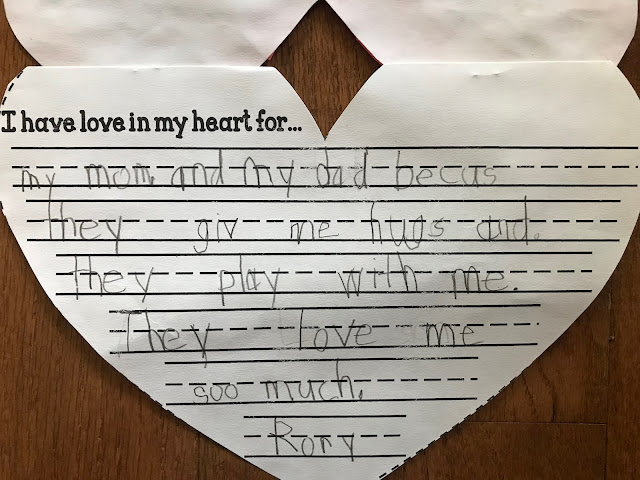 I have love in my heart for...
my mom and my dad becus
they giv me hugs and.
they play with me.
They love me
soo much.
Rory